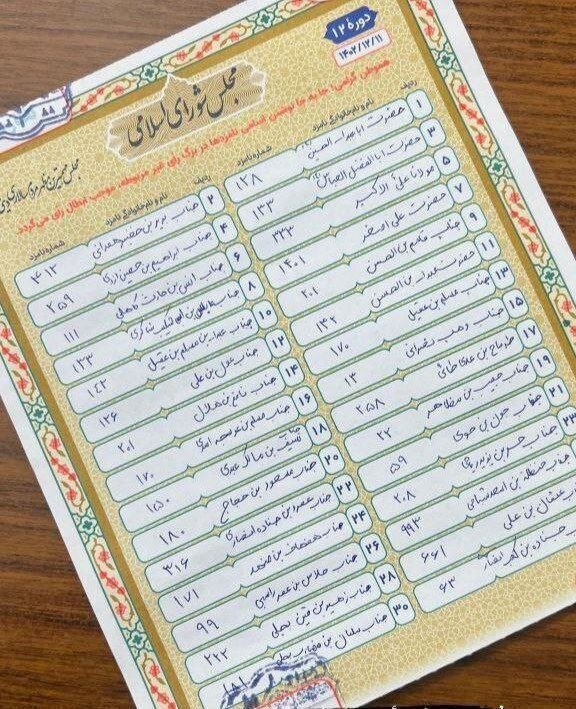 دورهٔ ۱۲
۱۴۰۲/۱۲/۱۱
مجلس شورای اسلامی
هموطن گرامی؛ جا به جا نوشتن اسامی نامزدها در برگ رای غیر مربوطه، موجب ابطال رای می‌گردد.
ردیف نام و نام خانوادگی نامزد شماره نامزد
۱ حضرت اباعبدالله الحسین ۱۲۸
۳ حضرت ابالفضل العباس ۱۳۳
۵ مولانا علی الاکبر ۳۳۳
۷ حضرت علی اصغر ۱۴۰۱
۹ جناب قاسم بن الحسن ۲۰۱
۱۱ حضرت عبدالله بن الحسن ۱۳۲
۱۳ جناب مسلم بن عقیل ۱۷۰
۱۵ جناب وهب نصرانی ۱۳
۱۷ طرماح بن عدی طائی ۲۵۸
۱۹ جناب حبیب بن مظاهر ۲۲
۲۱ جناب جون بن حوی ۵۹
۲۳ جناب حر بن یزید ریاحی ۲۰۸
جناب حنظله بن اسعد شبامی ۹۹۳
بن علی ۶۶۱
جناده بن کعب انصار ۶۳
ردیف نام و نام خانوادگی نامزد شماره نامزد
۲ جناب بریر بن خضیر همدانی ۴۱۲
۴ جناب ابراهیم بن حصین ازدی ۲۵۹
۶ جناب انس بن حارث کاهلی ۱۱۱
۸ جناب ۱۳۳
۱۰ جناب عبدالله بن مسلم بن عقیل ۱۴۲
۱۲ جناب عون بن علی ۱۲۶
۱۴ جناب نافع بن هلال ۲۰۱
۱۶ جناب مسلم بن عوسجه اسدی ۱۷۰
۱۸ جناب بن مالک عبدی ۱۵۰
۲۰ جناب مسعود بن حجاج ۱۸۰
۲۲ جناب عمرو بن جناده انصاری ۳۱۶
۲۴ جناب هفهاف بن مهند ۱۷۱
۲۶ جناب حلاس بن عمرو راسبی ۹۹
۲۸ جناب زهیر بن قین بجلی ۲۲۲
۳۰ جناب سلمان بن مضارب بجلی